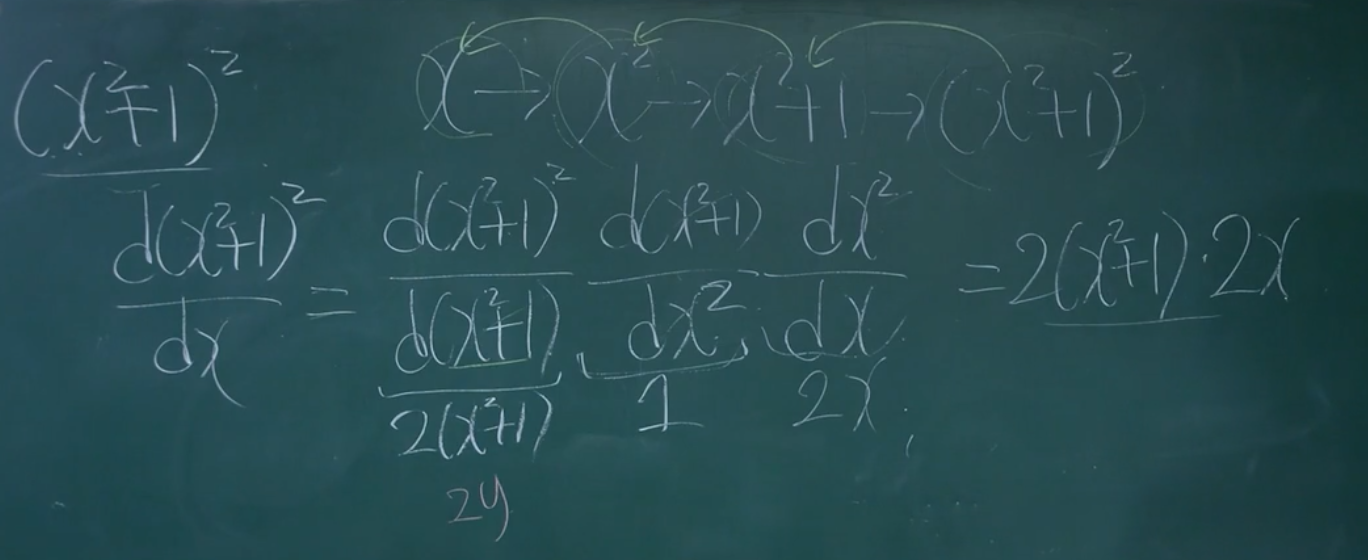 (x²+1)²
x → x² → x²+1 → (x²+1)²
d(x²+1)²/dx = d(x²+1)²/d(x²+1) · d(x²+1)/dx² · dx²/dx = 2(x²+1)·2x
2(x²+1) 1 2x
2y